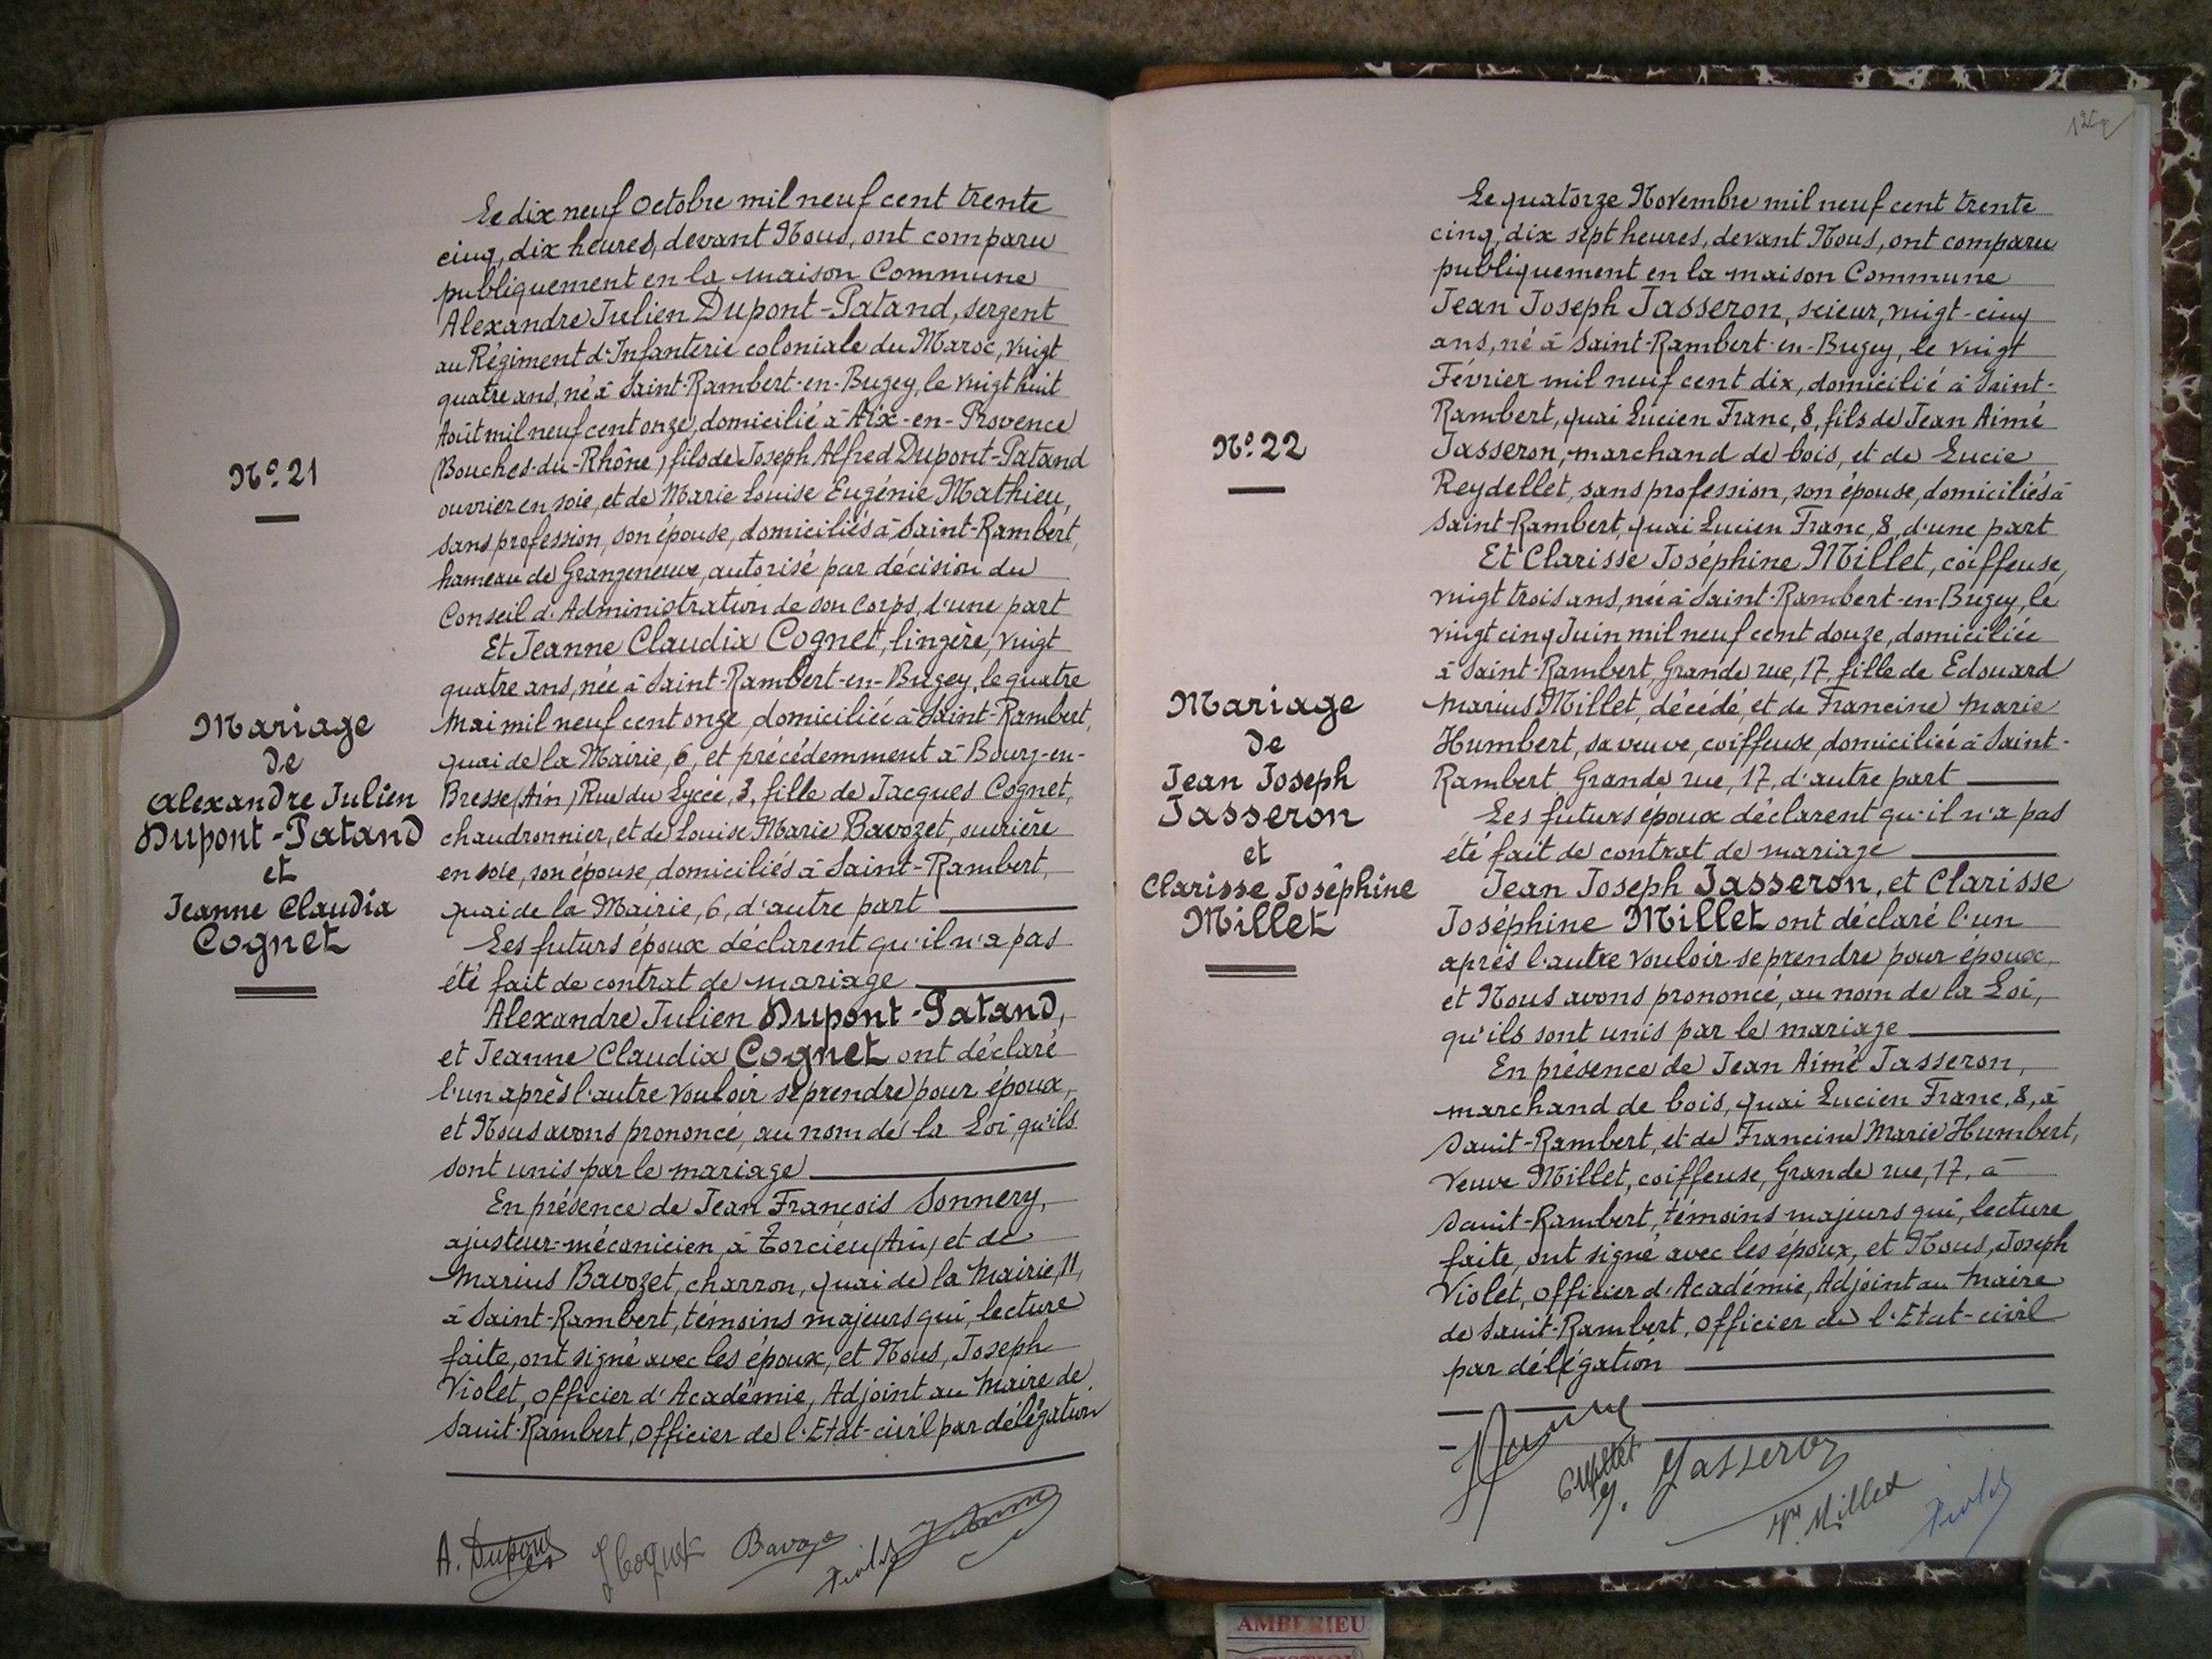 Nº 21
Mariage
de
Alexandre Julien
Dupont-Patand
et
Jeanne Claudia
Cognet
Le dix neuf Octobre mil neuf cent trente
cinq, dix heures, devant Nous, ont comparu
publiquement en la maison Commune
Alexandre Julien Dupont-Patand, sergent
au Régiment d'Infanterie coloniale du Maroc, vingt
quatre ans, né à Saint-Rambert-en-Bugey, le vingt huit
Août mil neuf cent onze, domicilié à Aix-en-Provence
(Bouches-du-Rhône) fils de Joseph Alfred Dupont-Patand
ouvrier en soie, et de Marie Louise Eugénie Mathieu,
sans profession, son épouse, domiciliés à Saint-Rambert,
hameau de Grangeneuve, autorisé par décision du
Conseil d'Administration de son Corps, d'une part
Et Jeanne Claudia Cognet, lingère, vingt
quatre ans, née à Saint-Rambert-en-Bugey, le quatre
Mai mil neuf cent onze, domiciliée à Saint-Rambert,
quai de la Mairie, 6, et précédemment à Bourg-en-
Bresse (Ain) Rue du Lycée, 3, fille de Jacques Cognet,
chaudronnier, et de Louise Marie Bavozet, ouvrière
en soie, son épouse, domiciliés à Saint-Rambert,
quai de la Mairie, 6, d'autre part
Les futurs époux déclarent qu'il n'a pas
été fait de contrat de mariage
Alexandre Julien Dupont-Patand,
et Jeanne Claudia Cognet ont déclaré
l'un après l'autre vouloir se prendre pour époux,
et Nous avons prononcé, au nom de la Loi, qu'ils
sont unis par le mariage
En présence de Jean François Sonnery,
ajusteur-mécanicien, à Torcieu (Ain) et de
Marius Bavozet, charron, quai de la Mairie, 11,
à Saint-Rambert, témoins majeurs qui, lecture
faite, ont signé avec les époux, et Nous, Joseph
Violet, Officier d'Académie, Adjoint au Maire de
Saint-Rambert, Officier de l'Etat-civil par délégation
A. Dupont
J Cognet
Violet
Nº 22
Mariage
de
Jean Joseph
Jasseron
et
Clarisse Joséphine
Millet
Le quatorze Novembre mil neuf cent trente
cinq, dix sept heures, devant Nous, ont comparu
publiquement en la maison Commune
Jean Joseph Jasseron, scieur, vingt-cinq
ans, né à Saint-Rambert-en-Bugey, le vingt
Février mil neuf cent dix, domicilié à Saint-
Rambert, quai Lucien Franc, 8, fils de Jean Aimé
Jasseron, marchand de bois, et de Lucie
Reydellet, sans profession, son épouse, domiciliés à
Saint-Rambert, quai Lucien Franc, 8, d'une part
Et Clarisse Joséphine Millet, coiffeuse,
vingt trois ans, née à Saint-Rambert-en-Bugey, le
vingt cinq Juin mil neuf cent douze, domiciliée
à Saint-Rambert, Grande rue, 17, fille de Edouard
Marius Millet, décédé, et de Francine Marie
Humbert, sa veuve, coiffeuse, domiciliée à Saint-
Rambert, Grande rue, 17, d'autre part
Les futurs époux déclarent qu'il n'a pas
été fait de contrat de mariage
Jean Joseph Jasseron, et Clarisse
Joséphine Millet ont déclaré l'un
après l'autre vouloir se prendre pour époux,
et Nous avons prononcé, au nom de la Loi,
qu'ils sont unis par le mariage
En présence de Jean Aimé Jasseron,
marchand de bois, quai Lucien Franc, 8, à
Saint-Rambert, et de Francine Marie Humbert,
Veuve Millet, coiffeuse, Grande rue, 17, à
Saint-Rambert, témoins majeurs qui, lecture
faite, ont signé avec les époux, et Nous, Joseph
Violet, Officier d'Académie, Adjoint au Maire
de Saint-Rambert, Officier de l'Etat-civil
par délégation
C Millet
J. Jasseron
Vve Millet
Violet
AMBERIEU